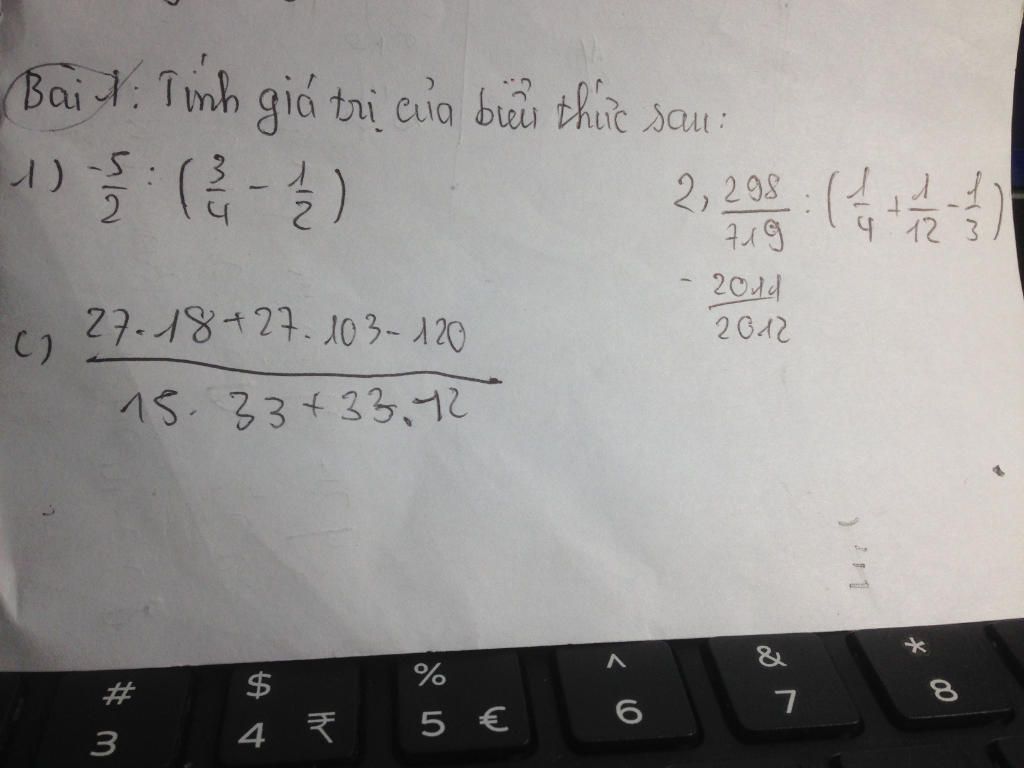 Bài 1: Tính giá trị của biểu thức sau:
1) -5/2 : (3/4 - 1/2)
2, 298/719 : (1/4 + 1/12 - 1/3)
- 2011/2012
c) 27.18+27.103-120
15. 33+33.12
# $ % ^ & *
3 4 ₹ 5 € 6 7 8